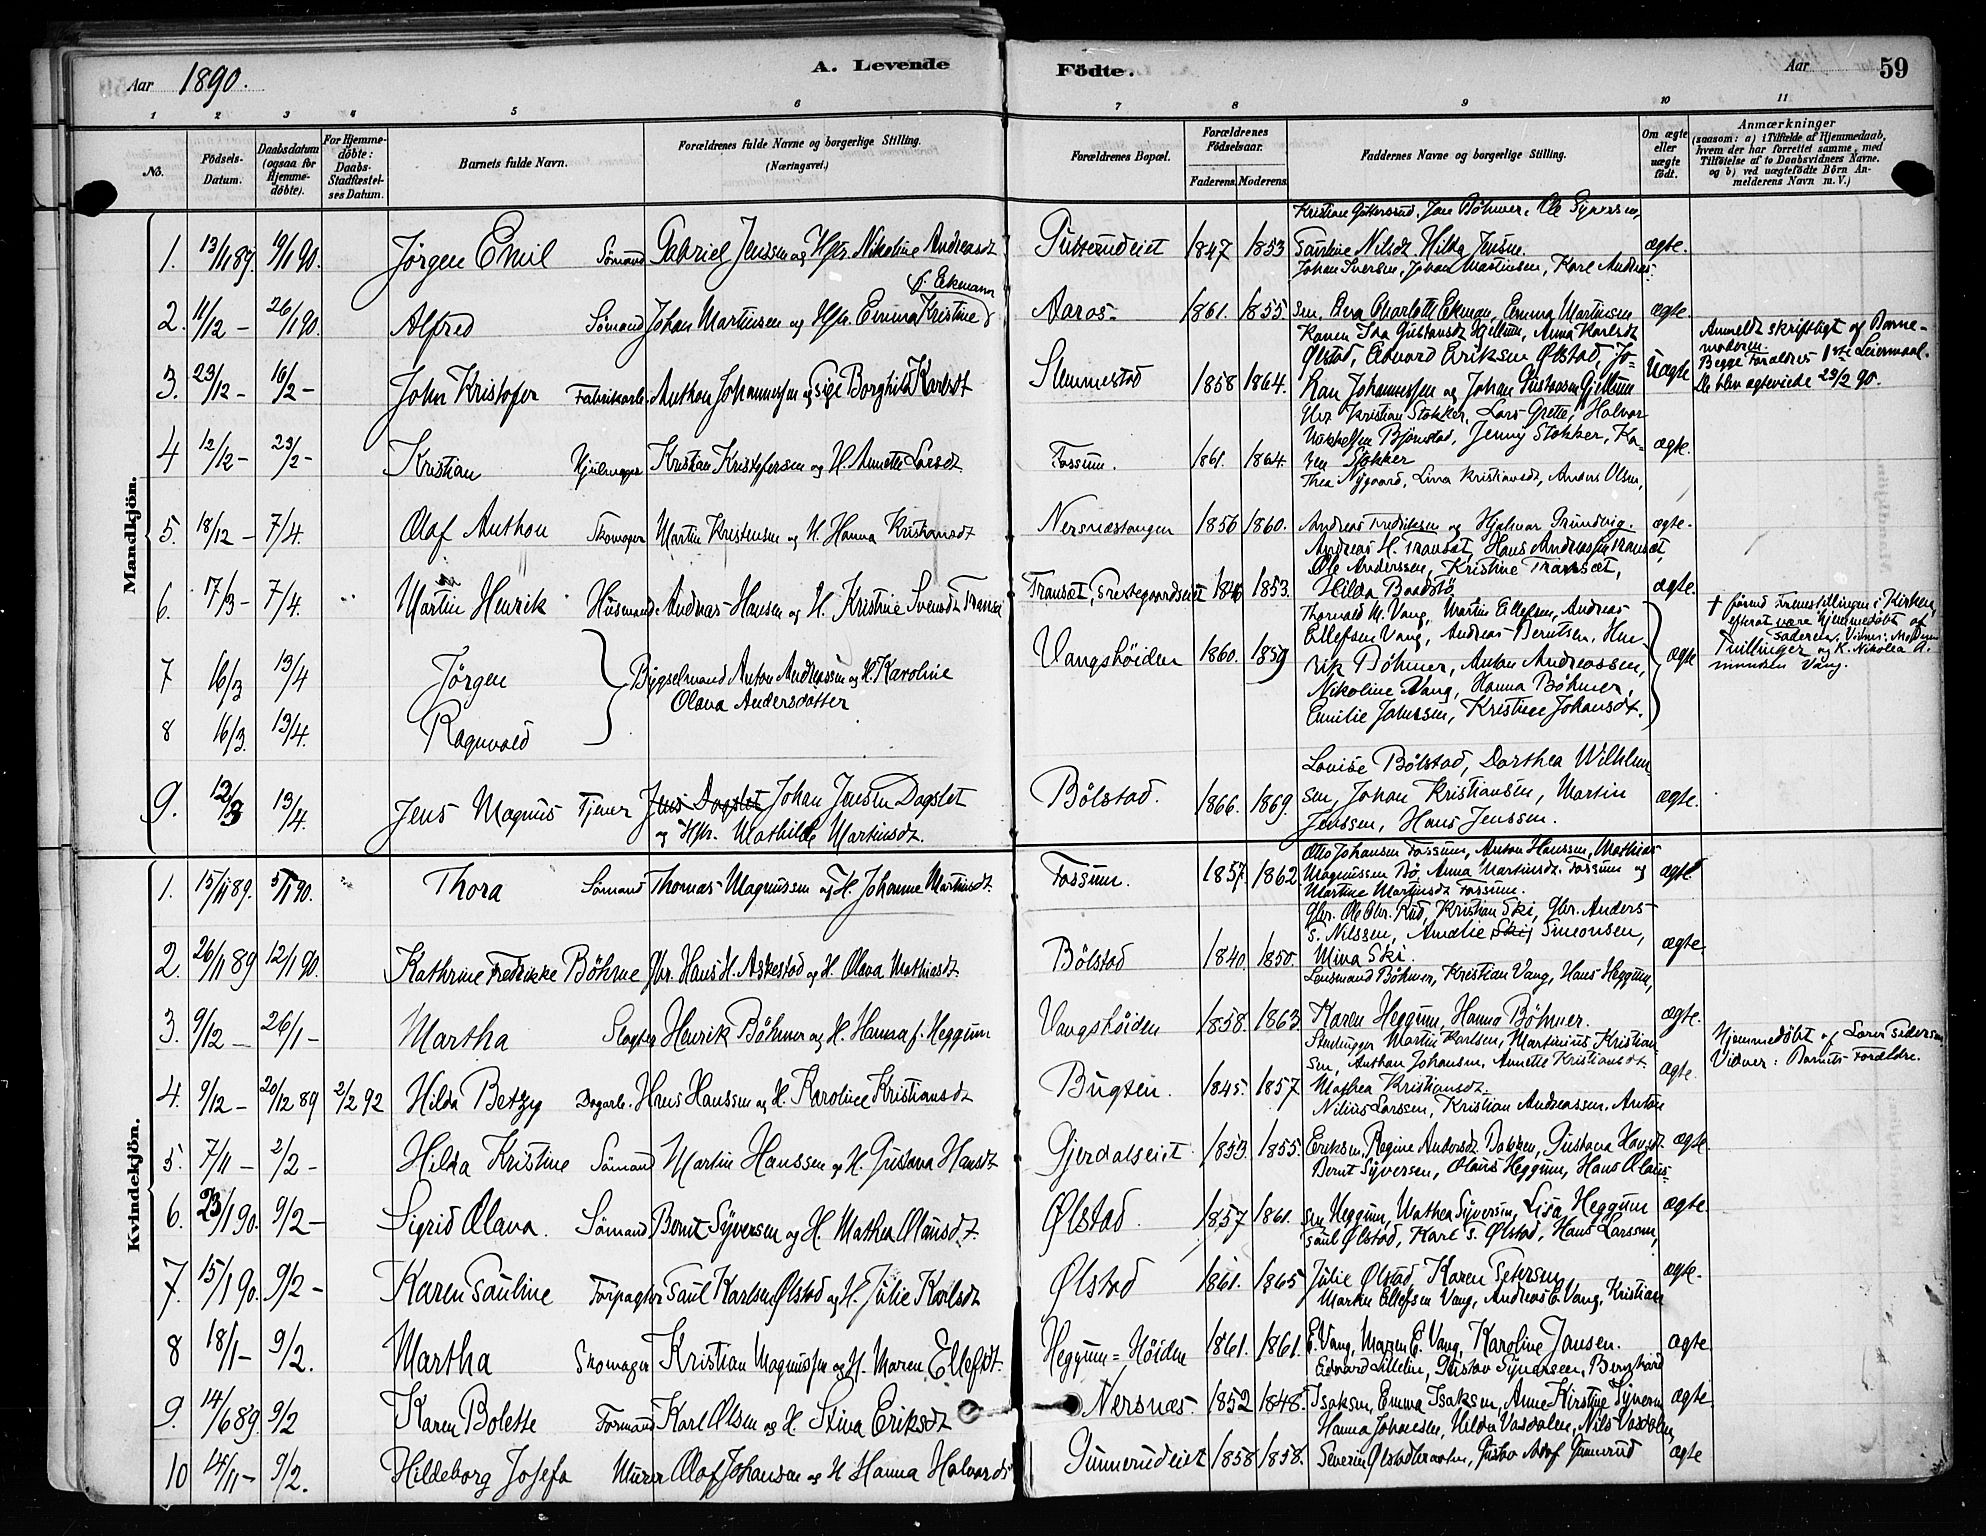 Aar 1890.
A. Levende
Födte.
Aar
59
1 2 3 4 5 6 7 8 9 10 11
No.
Födsels-Datum.
Daabsdatum (ogsaa for Hjemmedöbte).
For Hjemmedöbte: Daabs-Stadfæstelses Datum.
Barnets fulde Navn.
Forældrenes fulde Navne og borgerlige Stilling.
(Næringsvei.)
Forældrenes Bopæl.
Forældrenes Födselsaar.
Faderens. Moderens.
Faddernes Navne og borgerlige Stilling.
Om ægte eller uægte födt.
Anmærkninger
(saasom: a) i Tilfælde af Hjemmedaab, hvem der har forrettet samme, med Tilföielse af to Daabsvidners Navne, og b) ved uægtefödte Börn Anmelderens Navn m. V.)
Mandkjön.
Kristine Guttersrud, Jon Böhmer, Ole Syversen,
1. 13/11 89. 19/1 90. Jørgen Emil Sømand Gabriel Jenssen og Hstr. Nikoline Andreasdt Gutterudeiet 1847 1853 Nilsdt Hilda Jensen ægte.
Johan Iversen, Johan Martinsen, Karl Andreas-
f. Eckmann
2. 11/12 – 26/1 90. Alfred Sømand Johan Martinsen og Hstr. Emma Kristine Aaros 1861. 1855 sen. Charlotte Ekman, Emma Martinsen ægte.
Karen Gustavsdt Gjellum, Anna Karlsdt
Anmeldt skriftligt af Barnemoderen.
Ølstad, Edvard Eriksen Ølstad, Jo-
Begge Forældres 1ste Leiermaal.
3. 23/12 – 16/2 – John Kristofer Fabrikarb. Anthon Johannesen og Pige Borghild Karlsdt Slemmestad 1858 1864. han Johannessen og Johan Gustavsen Gjellum Uægte De blev ægteviede 23/2 90.
Kristian Stokker, Lars Grette, Halvor
4 12/12 – 23/2 – Kristian Hjulmager Kristian Kristofersen og H. Annette Larsdt. Fossum. 1861. 1864. Björnstad, Jenny Stokker, Ka- ægte.
ren Stokker
Thea Nygaard, Lina Kristiansdt, Anders Olsen,
5. 18/12 – 7/4. Olaf Anthon Skomager Martin Kristensen og H. Hanna Kristiansdt Nersnæstangen 1856 1860. Andreas Fredriksen og Hjalmar Grundvig. ægte.
Andreas H. Transæt, Hans Andreassen Transæt,
Ole Anderssen, Kristine Transæt,
6. 17/3 – 7/4. Martin Henrik Husmand Andreas Hansen og H. Kristine Svendsdt Transæt, Prestegaardseiet 1846 1853. Hilda Baadstø ægte.
Thorvald M. Vang, Martin Ellefsen, Andreas
† förend Fremstillingen i Kirken, efterat være hjemmedøbt af Faderen,
Ellefsen Vang, Andreas Berntsen, Hen
7 16/3 13/4 Jörgen Bygselmand Anton Andreassen og H. Karoline Vangshöiden 1860. 1859 rik Böhmer, Anton Andreassen, ægte Tvillinger og K. Nikolea A. Vang.
Olava Andersdatter
Nikoline Vang, Hanna Böhmer,
8 16/3 13/4. Ragnvald Emilie Johnssen, Kristine Johansdt.
Louise Bölstad, Dorthea Wilhelm
9. 12/3 13/4. Jens Magnus Tjener Jens Dagslet Johan Jensen Dagslet Bölstad. 1866. 1869. sen, Johan Kristiansen, Martin ægte.
og Hstr. Mathilde Martinsdt. Jenssen, Hans Jenssen.
Kvindekjön.
Otto Johansen Fossum, Anton Hanssen, Mathias
1. 15/11 89. 5/1 90. Thora Sømand Thomas Magnussen og H. Johanne Martinsdt. Fossum. 1857 1862 Magnussen Bö, Anna Martinsdt. Fossum og ægte
Martine Martinsdt Fossum.
Gbr. Ole Rud, Kristian Ski, Gbr. Anders
S. Nilssen, Amalie Ski Simonsen,
2. 26/11 89 12/1 90. Kathrine Fredrikke Böhme Gbr. Hans H. Askestad og H. Olava Mathiasdt. Bölstad 1840 1850. Mina Ski. ægte.
Lensmand Böhmer, Kristian Vang, Hans Heggum,
3. 9/12 – 26/1 – Martha Slagter Henrik Böhmer og H. Hanna f. Heggum Vangshöiden 1858. 1863. Karen Heggum, Hanna Böhmer. ægte.
Stenhugger Martin Karlsen, Martinius Kristian
Hjemmedøbt af Lars Pedersen
sen, Anthon Johansen, Annette Kristiansdt.
Vidner: Barnets Forældre.
4. 9/12 – 20/12 89 2/2 92 Hilda Betzy Dagarb. Hans Hanssen og H. Karoline Kristiansdt Bugten. 1845. 1857 Mathea Kristiansdt. ægte.
Nilius Larssen, Kristian Andreassen, Anton
5. 7/11 – 2/2 – Hilda Kristine Sømand Martin Hanssen og H. Gustava Hansdt Gjerdalseiet 1853 1855. Eriksen, Regine Andersdt. Dokken, Gustava Hansdt ægte.
Bernt Syversen, Olaus Heggum, Hans Olaus-
6. 23/1 90. 9/2 – Sigrid Olava. Sømand Bernt Syversen og H. Mathea Olausdt. Ølstad. 1857 1861. sen Heggum, Mathea Syversen, Lisa Heggum ægte.
Paul Ølstad, Karl P. Ølstad, Hans Larssen,
7. 15/1 90. 9/2 – Karen Pauline Forpagter Paul Karlsen Ølstad og H. Julie Karlsdt Ølstad 1861. 1865 Julie Ølstad, Karen Petersen ægte.
Martin Ellefsen Vang, Andreas E. Vang, Kristian
8 18/1 – 9/2. Martha Skomager Kristian Magnussen og H. Maren Ellefsdt. Heggum-Höiden 1861. 1861. E. Vang, Maren E. Vang, Karoline Jansen. ægte.
Edvard Gustav Bernhard
9. 14/6 89. 9/2 Karen Bolette Formand Karl Olsen og H. Stina Eriksdt Nersnæs. 1852 1848. Isaksen, Emma Isaksen, Anne Kirstine Syversen ægte.
Hanna Johnsen, Hilda Vasdalen, Nils Vasdalen,
10 14/11 – 9/2. Hildeborg Josefa Murer Olaf Johansen og H. Hanna Halvorsdt Gunnerudeiet 1858 1858. Severin Gustav Adolf Gunnerud ægte